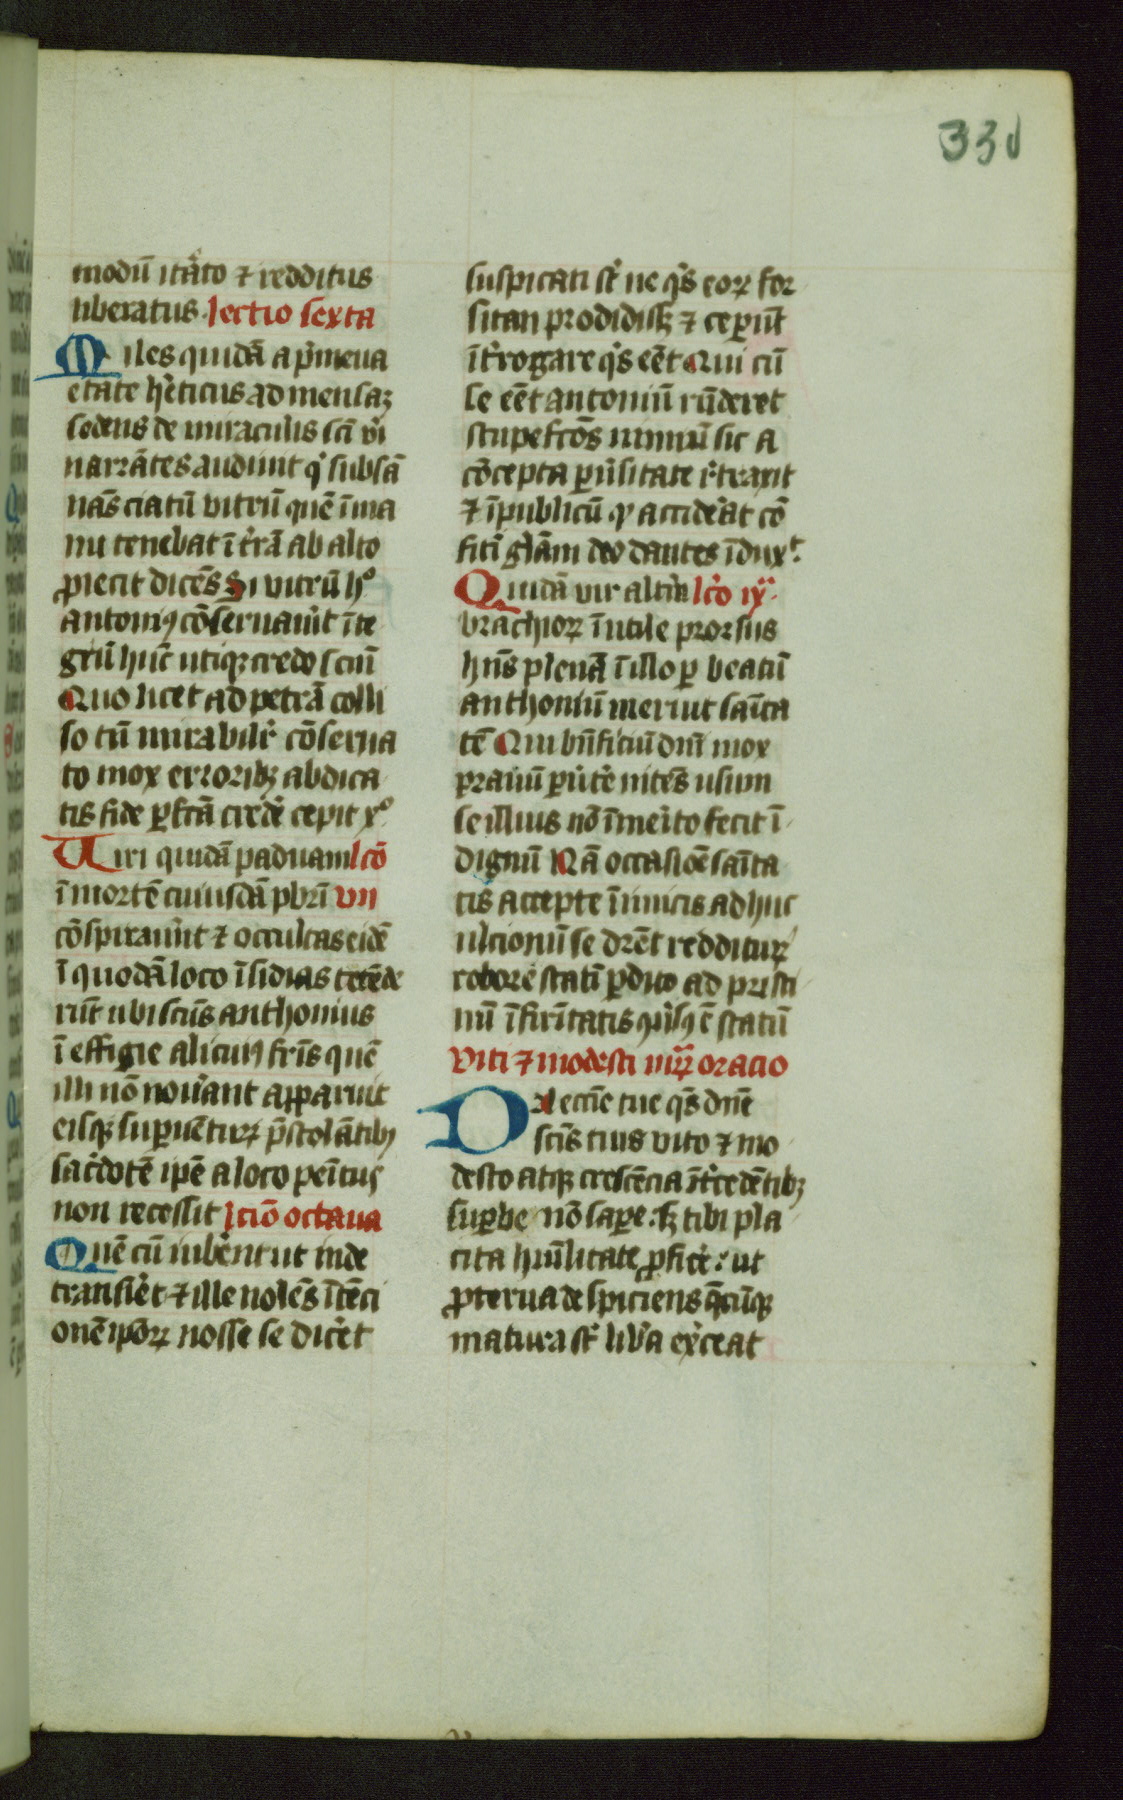 330
modū itāto ⁊ redditus
liberatus. lectio sexta
Miles quidā a pͥmeua
etate hͤticus ad mensaꝫ
sedens de miraculis scī vͥi
narrātes audiuit qͥ subsā
nās ciatū vitriū quē ī ma
nu tenebat ī t̄rā ab alto
ꝓiecit dicēs Si vitrū hͦ
antoniꝰ cōseruauit īte
grū hūc utiqꝫ credo scīū
Quo licet ad petrā colli
so tū mirabilͥ cōserua
to mox erroribꝫ abdica
tis fide ꝑfctā credͤ cepit xͦ
Uiri quidā paduani lcō
ī mortē cuiusdā pbrī vii
cōspirauͤnt ⁊ occultas eidē
ī quodā loco īsidias tetēde
rūt ubi scūs anthonius
ī effigie alicuiꝰ frīs quē
illi nō nouͤant apparuit
eisqꝫ suꝑuētuꝝ p̄stolātibꝰ
sacͤdotē ipē a loco penītus
non recessit lcīō octaua
Quē cū iubͤent ut inde
transiͤet ⁊ ille nolēs ītēci
onē ipōꝝ nosse se dicͤet
suspicati sͭ ne qͥs eoꝝ for
sitan prodidissꝫ ⁊ ceꝑūt
īt̄rogare qͥs eēt Qui cū
se eēt antoniū rn̄deret
stupefctōs nimiū sic a
cōcepta ꝑuͤsitate rͤtraxit
⁊ ī publicū qͩ accidͤat cō
fiti glām deo dantes īduxͭ
Quidā vir altͤiꝰ lcͦo ixͣ
brachioꝝ īutile prorsus
hn̄s plenā ī illo ꝑ beatū
anthoniū meruit sāita
tē Qui bn̄ficiū dnī mox
prauū ꝑuͤtͤe nitēs usum
se illius nō īmeͥto fecit ī
dignū Nā occasiōe sāita
tis accepte īimicis adhuc
ulcionū se dr̄ēt redditurꝰ
robore statī ꝑdito ad pristi
nū īfirītatis ē statū
viti ⁊ modesti mr̄ꝝ oracio
Da eccīe tue qͥs dn̄e
scīs tuis vito ⁊ mo
desto atqꝫ crescēcia ītͤcedētibꝫ
suꝑbe nō saꝑe. sꝫ tibi pla
cita hūilitate ꝓficͤe: ut
ꝓterua despiciens q̄cūqꝫ
matura sͭ libͤa exͤceat